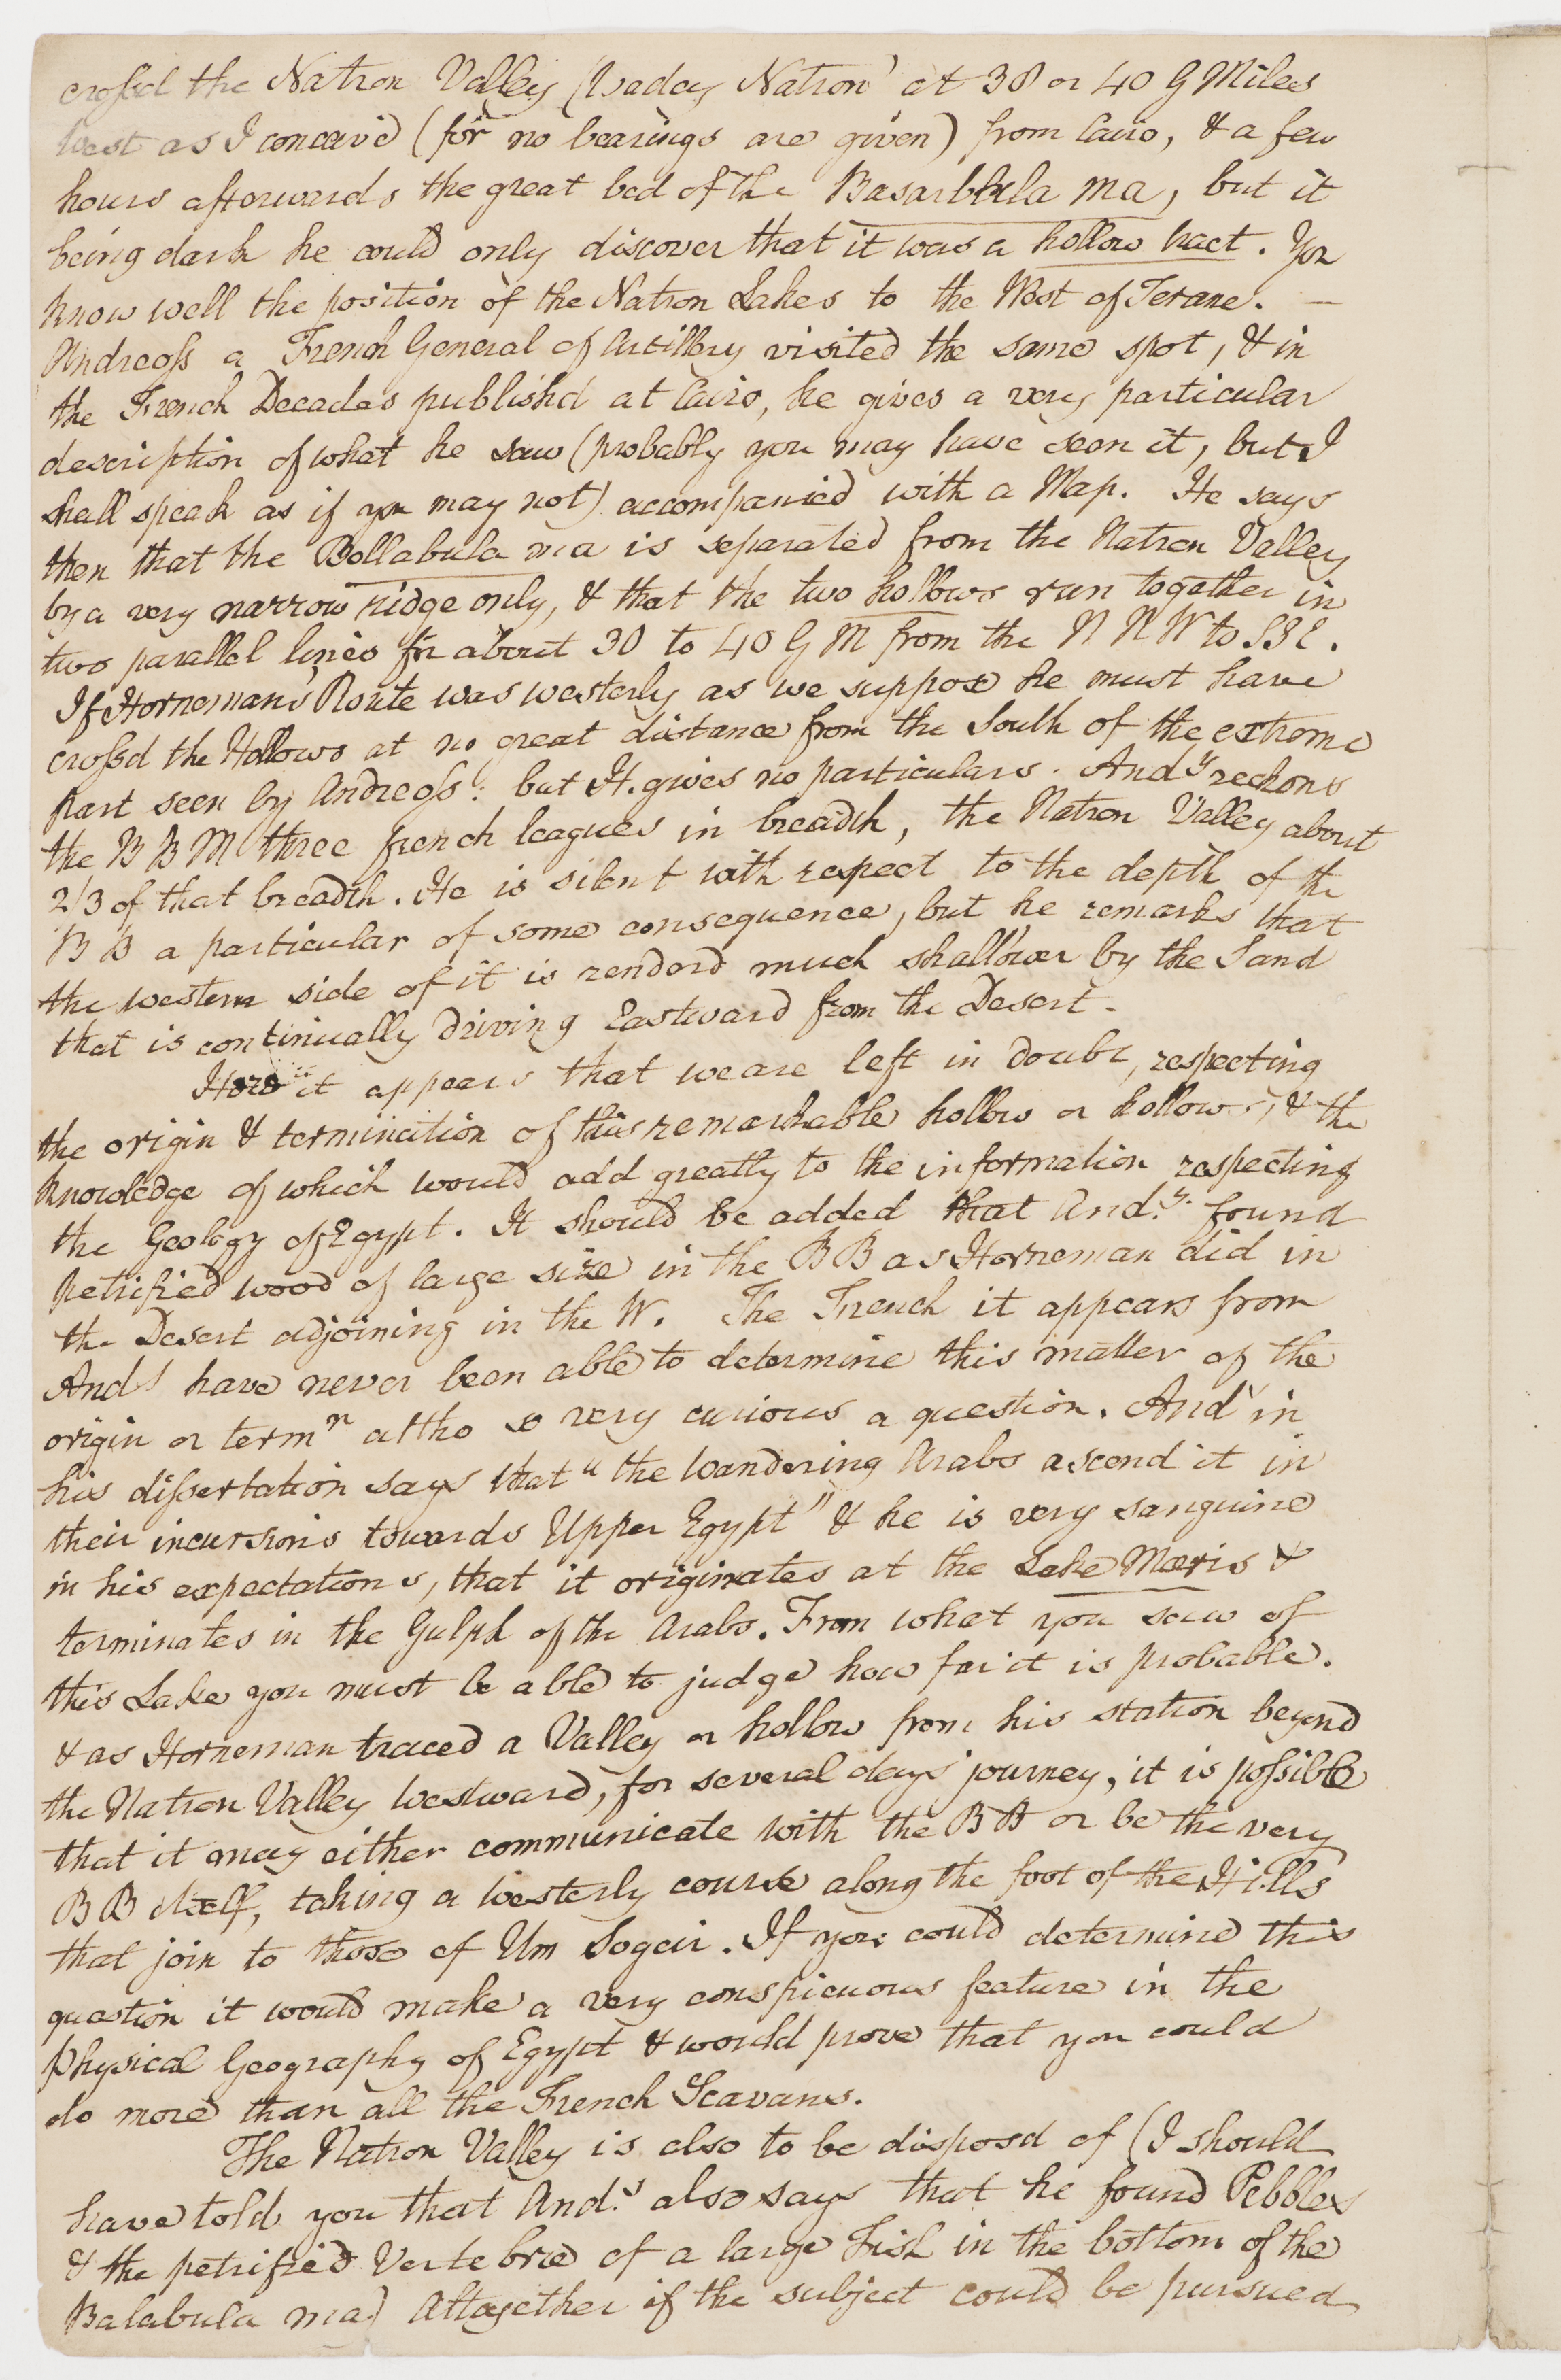 crossd the Natron Valley (Waday Natron) at 38 or 40 G Miles
West as I conceive (for no bearings are given) from Cairo, & a few
hours afterwards the great bed of the Basarbhila ma, but it
being dark he could only discover that it was a hollow tract. You
know well the position of the Natron Lakes to the West of Terane. —
Andreoss a French General of Artillery visited the same spot, & in
the French Decades publishd at Cairo, he gives a very particular
description of what he saw (probably you may have seen it, but I
shall speak as if you may not) accompanied with a Map. He says
then that the Bollabula ma is separated from the Natron Valley
by a very narrow ridge only, & that the two hollows run together in
two parallel lines for about 30 to 40 G M from the N N W to S S E.
If Horneman's Route was westerly as we suppose he must have
crossd the Hollows at no great distance from the South of the extreme
part seen by Andreoss: but H. gives no particulars. Andˢ reckons
the B B M three french leagues in breadth, the Natron Valley about
2/3 of that breadth. He is silent with respect to the depth of the
B B a particular of some consequence, but he remarks that
the western side of it is renderd much shallower by the Sand
that is continually driving Eastward from the Desert.
Here it appears that we are left in doubt, respecting
the origin & termination of this remarkable hollow or hollows, & the
knowledge of which would add greatly to the information respecting
the Geology of Egypt. It should be added that And.ˢ found
petrified wood of large size in the B B as Horneman did in
the Desert adjoining in the W. The French it appears from
Andˢ have never been able to determine this matter of the
origin or termⁿ altho so very curious a question. Andˢ in
his dissertation says that "the wandering Arabs ascend it in
their incursions towards Upper Egypt" & he is very sanguine
in his expectations, that it originates at the Lake Mæris &
terminates in the Gulph of the Arabs. From what you saw of
this Lake you must be able to judge how far it is probable.
& as Horneman traced a Valley or hollow from his station beyond
the Natron Valley Westward, for several days journey, it is possible
that it may either communicate with the B B or be the very
B B itself, taking a westerly course along the foot of the Hills
that join to those of Um Sogeir. If you could determine this
question it would make a very conspicuous feature in the
Physical Geography of Egypt & would prove that you could
do more than all the French Scavans.
The Natron Valley is also to be disposd of (I should
have told you that And.ˢ also says that he found Pebbles
& the petrified Vertebræ of a large Fish in the bottom of the
Balabula ma) Altogether if the subject could be pursued